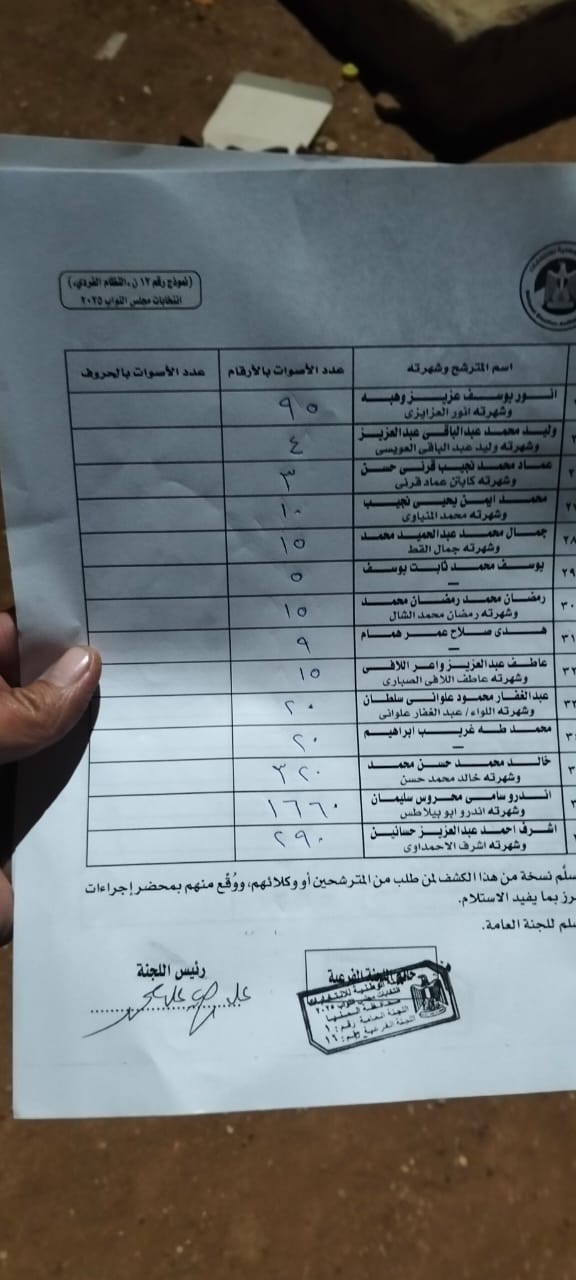 (نموذج رقم ١٢ ن، النظام الفردي،)
انتخابات مجلس النواب ٢٠٢٥
اسم المترشح وشهرته عدد الأصوات بالأرقام عدد الأصوات بالحروف
انور يوسف عزيز وهبه ٩٥
وشهرته انور العزايزى
وليد محمد عبدالباقى عبدالعزيز ٤
وشهرته وليد عبد الباقى العويسى
عماد محمد نجيب قرنى حسن ٣
وشهرته كابتن عماد قرنى
محمد ايمن يحيى نجيب ١٠
وشهرته محمد المنياوى
٢٨ جمال محمد عبدالحميد محمد ١٥
وشهرته جمال القط
٢٩ يوسف محمد ثابت يوسف ٥
—
٣٠ رمضان محمد رمضان محمد ١٥
وشهرته رمضان محمد الشال
٣١ هدى صلاح عمر همام ٩
—
٣٢ عاطف عبدالعزيز واعر اللافى ١٥
وشهرته عاطف اللافى الصبارى
٣٣ عبدالغفار محمود علوانى سلطان ٢٠
وشهرته اللواء/ عبد الغفار علوانى
محمد طه غريب ابراهيم ٢٠
—
خالد محمد حسن محمد ٣٢٠
وشهرته خالد محمد حسن
اندرو سامى محروس سليمان ١٦٦٠
وشهرته اندرو ابو بيلاطس
اشرف احمد عبدالعزيز حسانين ٢٩٠
وشهرته اشرف الاحمداوى
سلَّم نسخة من هذا الكشف لمن طلب من المترشحين أو وكلائهم، ووُقِّع منهم بمحضر إجراءات
رز بما يفيد الاستلام.
سلم للجنة العامة.
خاتم اللجنة الفرعية
رئيس اللجنة
الوطنية للانتخابات
انتخابات مجلس النواب ٢٠٢٥
محافظة
اللجنة العامة رقم: ١
اللجنة الفرعية رقم: ١٦